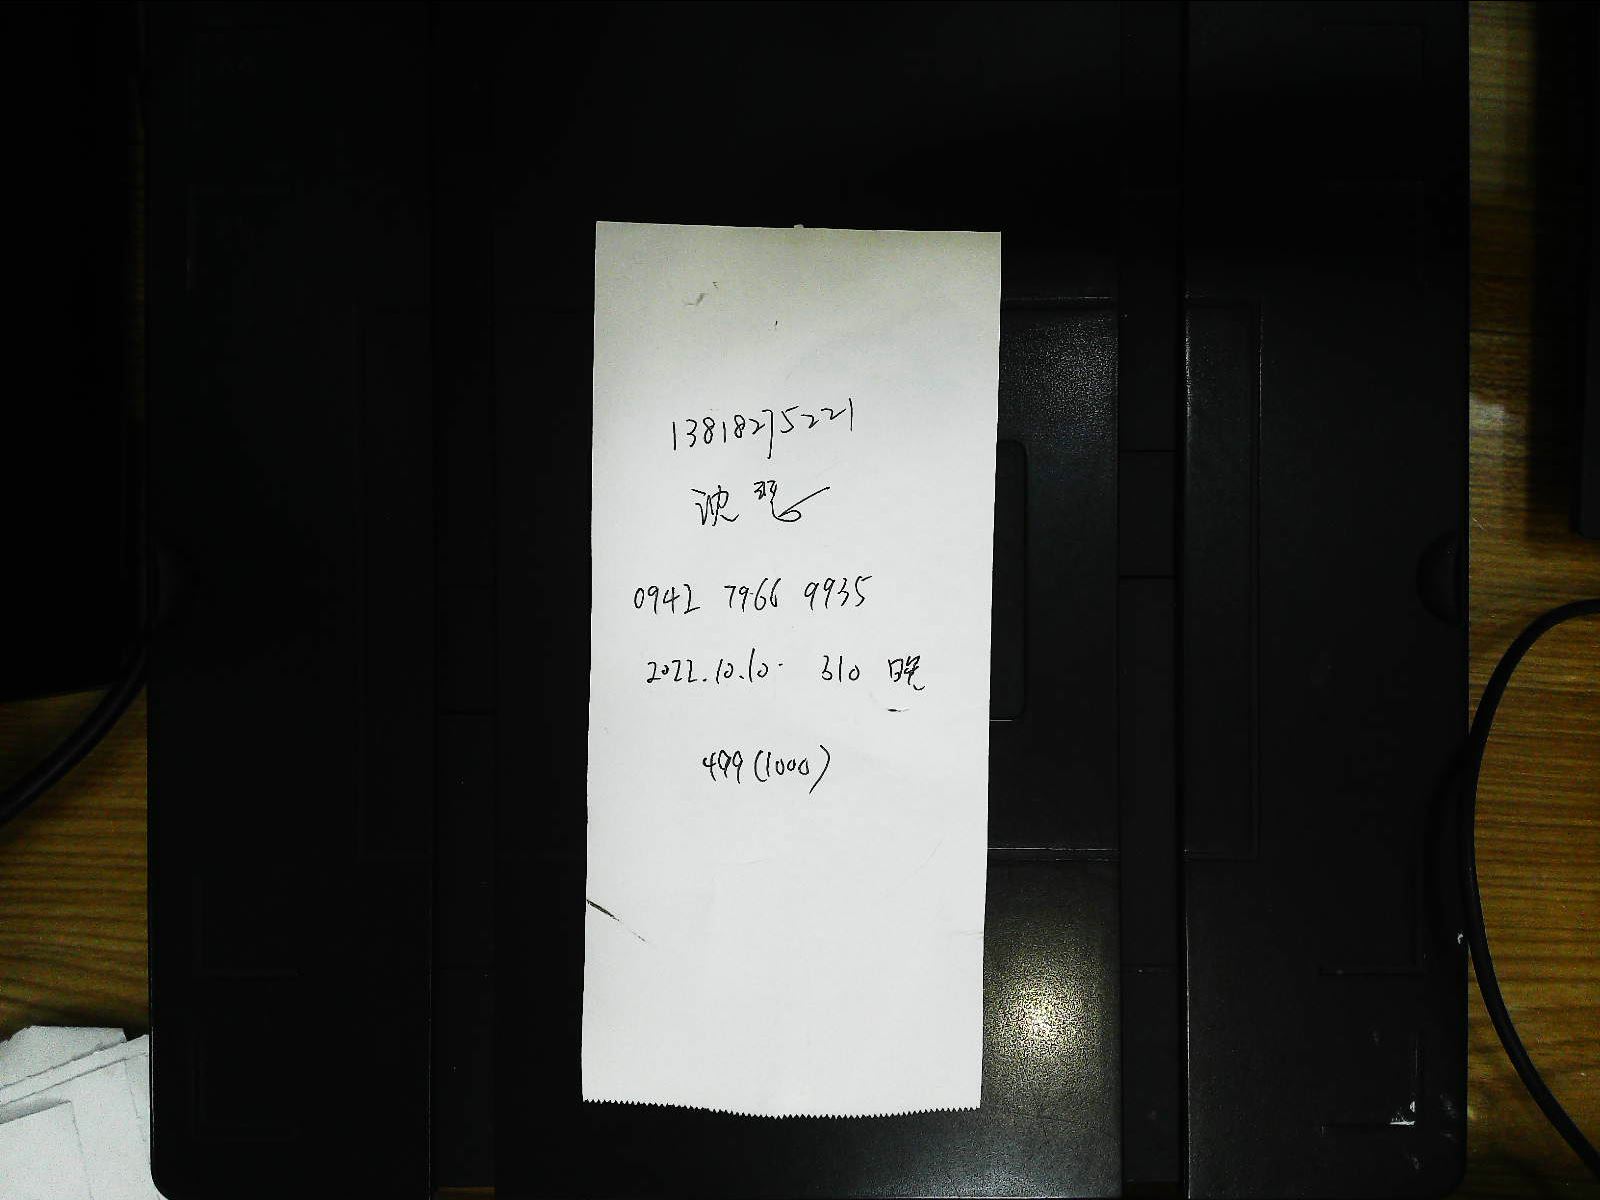 13818275221
沈
0942 7966 9935
2022.10.10. 310 晚
499(1000)